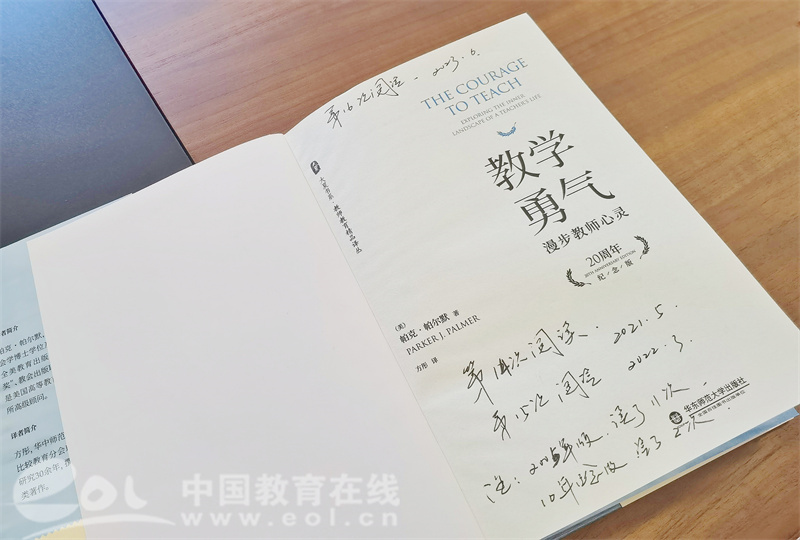 第16次阅读 - 2023.6.
THE COURAGE
TO TEACH
EXPLORING THE INNER
LANDSCAPE OF A TEACHER'S LIFE
大夏书系·教师教育精品译丛
教学
勇气
漫步教师心灵
20周年
20TH ANNIVERSARY EDITION
纪/念/版
(美)
帕克·帕尔默 著
PARKER J. PALMER
方彤 译
第14次阅读. 2021.5.
第15次阅读 2022.3.
华东师范大学出版社
全国百佳图书出版单位
注: 2005年版. 读了11次
10年纪念版 读了2次
著者简介
帕克·帕尔默,
会学博士学位
全美教育出版
奖”、教会出版
是美国高等教
所高级顾问。
译者简介
方彤, 华中师范
比较教育分会
研究30余年,
类著作。
eol 中国教育在线
www.eol.cn